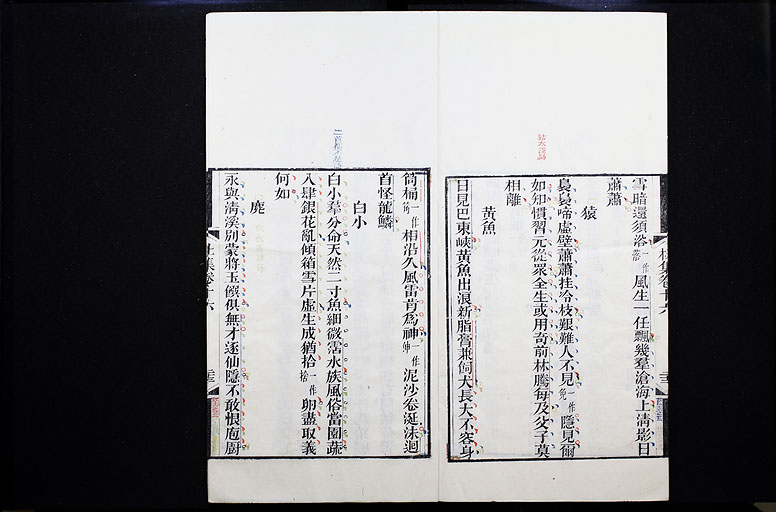 雪暗還須浴一作落風生一任飄幾羣滄海上清影日
蕭蕭
猿
裊裊啼虛壁蕭蕭挂冷枝艱難人不見一作免隱見爾
如知慣習元從眾全生或用奇前林騰每及父子莫
相離
黃魚
日見巴東峽黃魚出浪新脂膏兼飼犬長大不容身
筒桶一作筩相沿久風雷肯為神一作伸泥沙卷涎沫迴
首怪龍鱗
白小
白小羣分命天然二寸魚細微霑水族風俗當園蔬
入肆銀花亂傾箱雪片虛生成猶拾一作捨卵盡取義
何如
麂
永與清溪別蒙將玉饌俱無才逐仙隱不敢恨庖廚
杜集卷十六